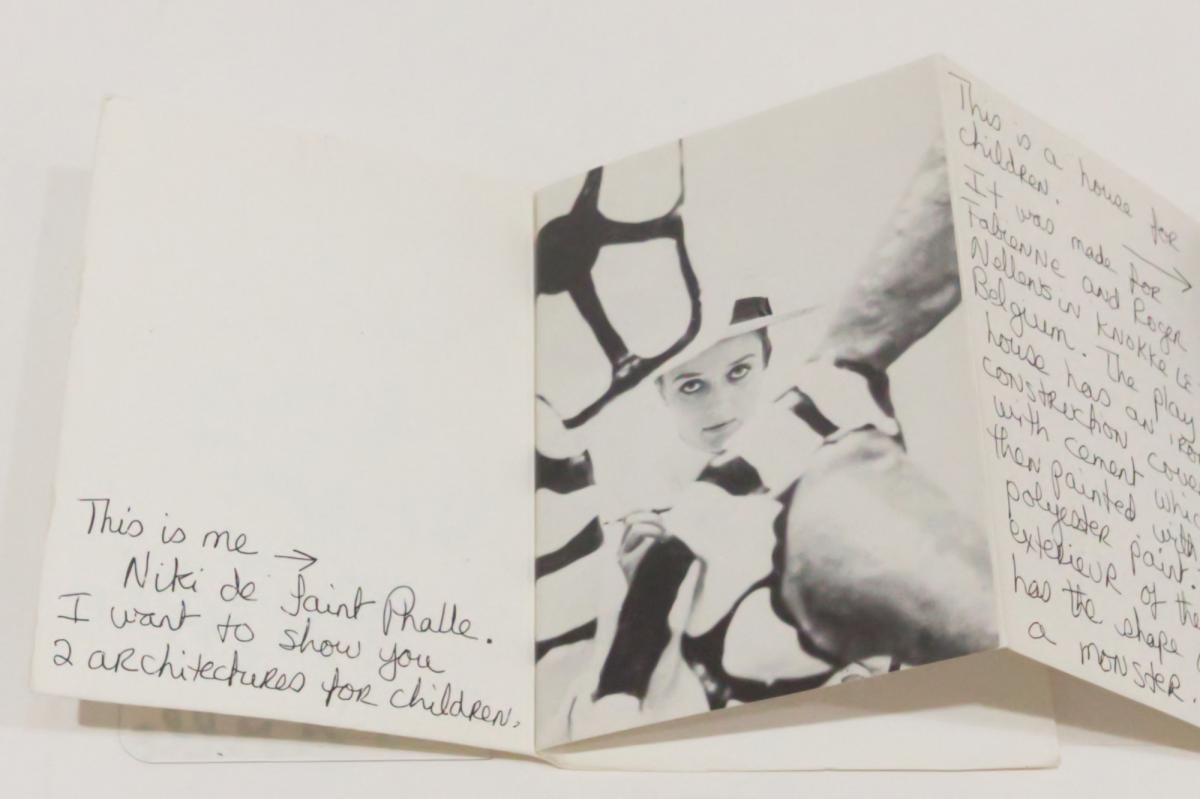 This is me →
Niki de Saint Phalle.
I want to show you
2 architectures for children.
This is a house for →
children.
It was made for
Fabienne and Roger
Nellens in Knokke Le
Belgium. The play
house has an iron
construction
with cement
then painted with
polyester paint.
exterieur of the
has the shape
a monster.